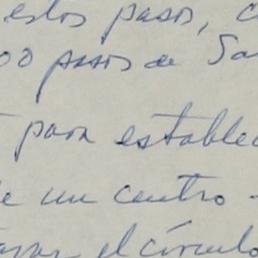 estos pasos, c
00 pasos de Sa
para establec
e un centro -
el círculo